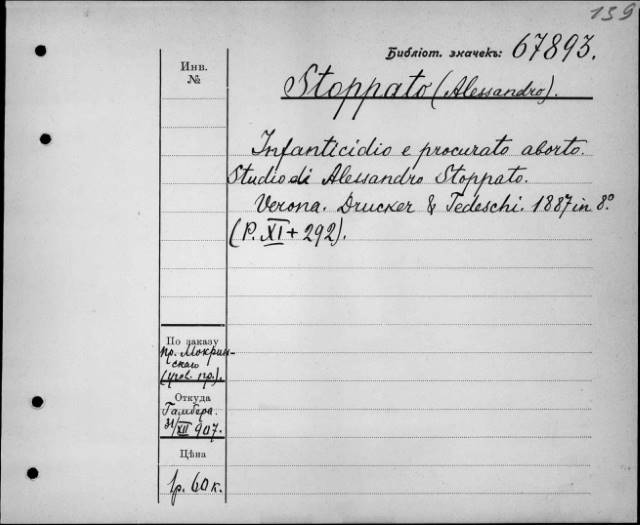 139
Библіот. значекъ: 67893.
Инв.
№
Stoppato (Alessandro).
Infanticidio e procurato aborto.
Studio di Alessandro Stoppato.
Verona. Drucker & Tedeschi. 1887 in 8º
(P. XI + 292).
По заказу
пр. Мокрин-
скаго
(угол. пр.).
Откуда
Гамбера.
31/XII 907.
Цѣна
1р. 60 к.